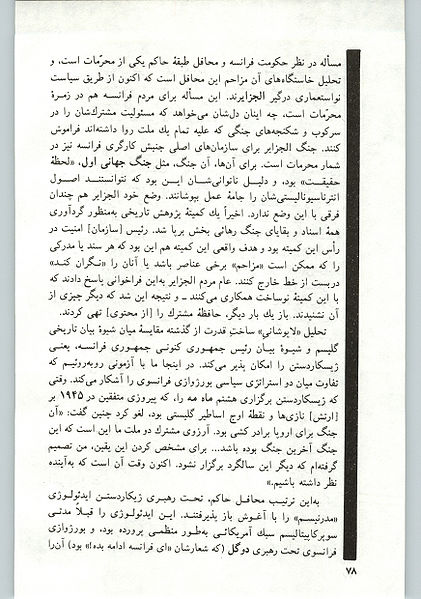 مسأله در نظر حکومت فرانسه و محافل طبقهٔ حاکم یکی از محرّمات است، و
تحلیل خاستگاه‌های آن مزاحم این محافل است که اکنون از طریق سیاست
نواستعماری درگیر الجزایرند. این مسأله برای مردم فرانسه هم در زمرهٔ
محرّمات است، چه اینان دل‌شان می‌خواهد که مسئولیت مشترك‌شان را در
سرکوب و شکنجه‌های جنگی که علیه تمام یك ملت روا داشته‌اند فراموش
کنند. جنگ الجزایر برای سازمان‌های اصلی جنبش کارگری فرانسه نیز در
شمار محرمات است. برای آن‌ها، آن جنگ، مثل جنگ جهانی اول، «لحظهٔ
حقیقت» بود، و دلیل ناتوانی‌شان این بود که نتوانستند اصول
انترناسیونالیستی‌شان را جامهٔ عمل بپوشانند. وضع خود الجزایر هم چندان
فرقی با این وضع ندارد. اخیراً یك کمیتهٔ پژوهش تاریخی به‌منظور گردآوری
همهٔ اسناد و بقایای جنگ رهائی بخش برپا شد. رئیس [سازمان] امنیت در
رأس این کمیته بود و هدف واقعی این کمیته هم این بود که هر سند یا مدرکی
را که ممکن است «مزاحم» برخی عناصر باشد یا آنان را «نگران کند»
دربست از خط خارج کنند. عام مردم الجزایر به‌این فراخوانی پاسخ دادند که
با این کمیتهٔ نوساخت همکاری می‌کنند ـ و نتیجه این شد که دیگر چیزی از
آن نشنیدند. باز یك بار دیگر، حافظهٔ مشترك را [از محتوی] تهی کردند.
تحلیل «لاپوشانی» ساختِ قدرت از گذشته مقایسهٔ میان شیوهٔ بیان تاریخی
گلیسم و شیوهٔ بیان رئیس جمهوری کنونی جمهوری فرانسه، یعنی
ژیسکاردستن را امکان پذیر می‌کند. در اینجا ما با آزمونی روبه‌روئیم که
تفاوت میان دو استراتژی سیاسی بورژوازی فرانسوی را آشکار می‌کند. وقتی
که ژیسکاردستن برگزاری هشتم ماه مه را، که پیروزی متفقین در ۱۹۴۵ بر
[ارتش] نازی‌ها و نقطهٔ اوج اساطیر گلیستی بود، لغو کرد چنین گفت: «آن
جنگ برای اروپا برادر کشی بود. آرزوی مشترك دو ملت ما این است که این
جنگ آخرین جنگ بوده باشد... برای مشخص کردن این یقین، من تصمیم
گرفته‌ام که دیگر این سالگرد برگزار نشود. اکنون وقت آن است که به‌آینده
نظر داشته باشیم.»
به‌این ترتیب محافل حاکم، تحت رهبری ژیکاردستن ایدئولوژی
«مدرنیسم» را با آغوش باز پذیرفتند. این ایدئولوژی را قبلاً مدتی
سوپرکاپیتالیسم سبك آمریکائی به‌طور منظمی پرورده بود، و بورژوازی
فرانسوی تحت رهبری دوگل (که شعارشان «ای فرانسه ادامه بده!» بود) آن‌را
۷۸